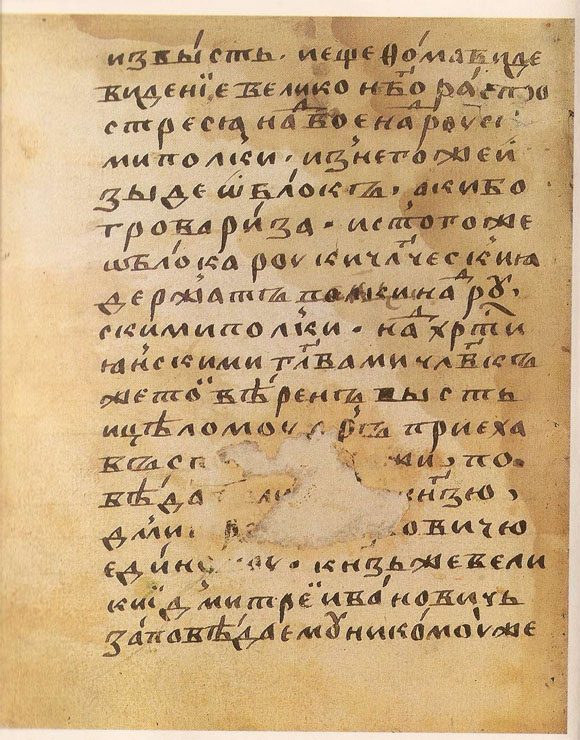 избысть · и еще Ѳома виде
видениїе велико нб҃о ра́спро
стресѧ на воена роуси
ми полки · изнегожеи
зыде ѡблокъ · акибо
гроваризa · истогоже
ѡблока роукичл҃ческиꙗ
держатъ полки нароу
скими полки · надхрт҃и
ꙗнскими гл҃вамичл҃вкъ
жетои вѣренъ бысть
ицѣломоудръ приеха
въ
повѣда кнѕ҃ю
дми овичю
един · кн҃зьжевели
киї дмитреї ивановичь
заповѣдаемꙋникомоуже